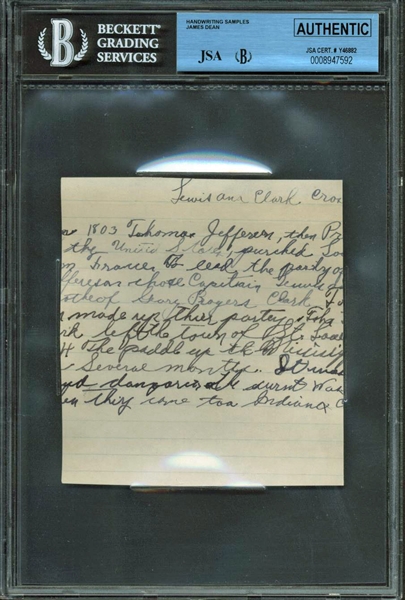 BECKETT
GRADING
SERVICES
HANDWRITING SAMPLES
JAMES DEAN
JSA
B
AUTHENTIC
JSA CERT. # Y46882
0008947592
Lewis and Clark Cros
1803 Tahomas Jefferson, then Pr
the United States, purched Lou
France. To lead the party
Jefferson chose Capitain Lewis
Geory Rogers Clark
made up thier party.
left the town of St.
The paddle up the
Several months.
dangorius
they came too Indiana